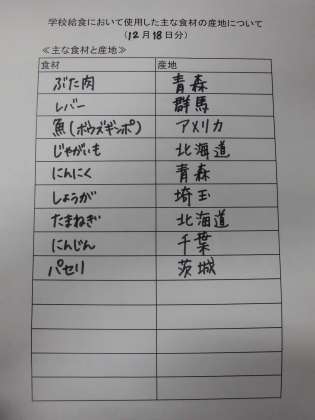 学校給食において使用した主な食材の産地について
(12月18日分)
≪主な食材と産地≫
食材 産地
ぶた肉 青森
レバー 群馬
魚(ボウズギンポ) アメリカ
じゃがいも 北海道
にんにく 青森
しょうが 埼玉
たまねぎ 北海道
にんじん 千葉
パセリ 茨城